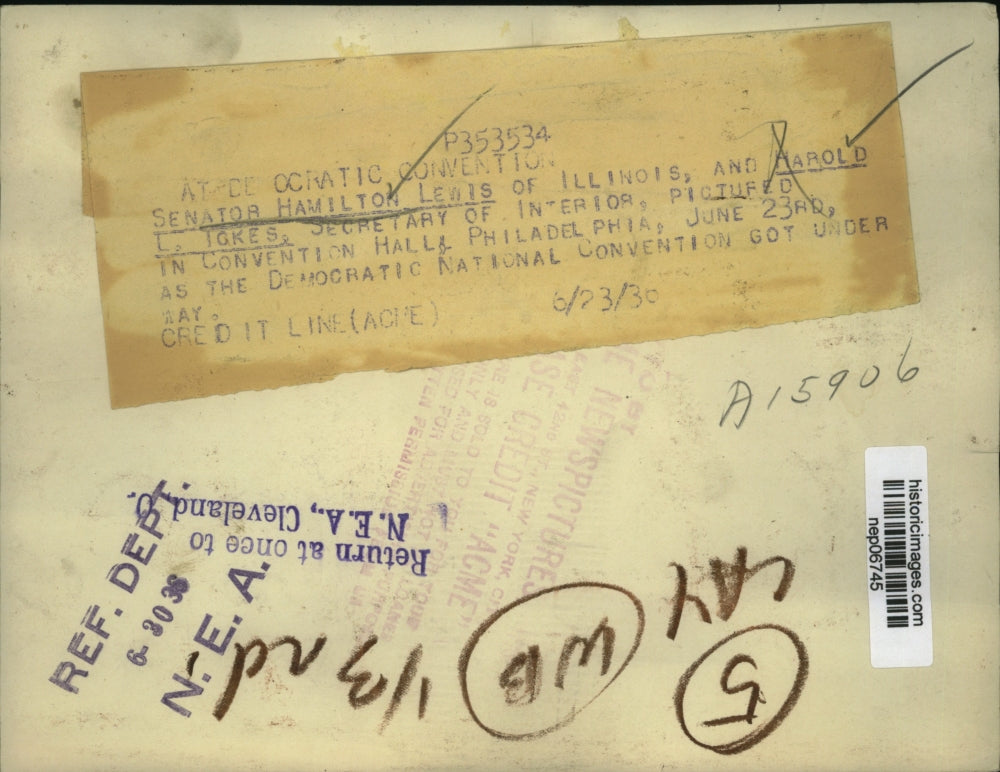 P353534
AT DE OCRATIC CONVENTION
SENATOR HAMILTON LEWIS OF ILLINOIS, AND HAROLD
L. ICKES, SECRETARY OF INTERIOR, PICTURED
IN CONVENTION HALL, PHILADELPHIA, JUNE 23RD,
AS THE DEMOCRATIC NATIONAL CONVENTION GOT UNDER
WAY.
CREDIT LINE (ACME) 6/23/36
A15906
NEWSPICTURES
NEW YORK
CREDIT "ACME"
IS SOLD TO
Return at once to
N.E.A., Cleveland, O.
REF. DEPT.
6-30 36
N. E. A.
1/3 rd
WB
5
historicimages.com
nep06745